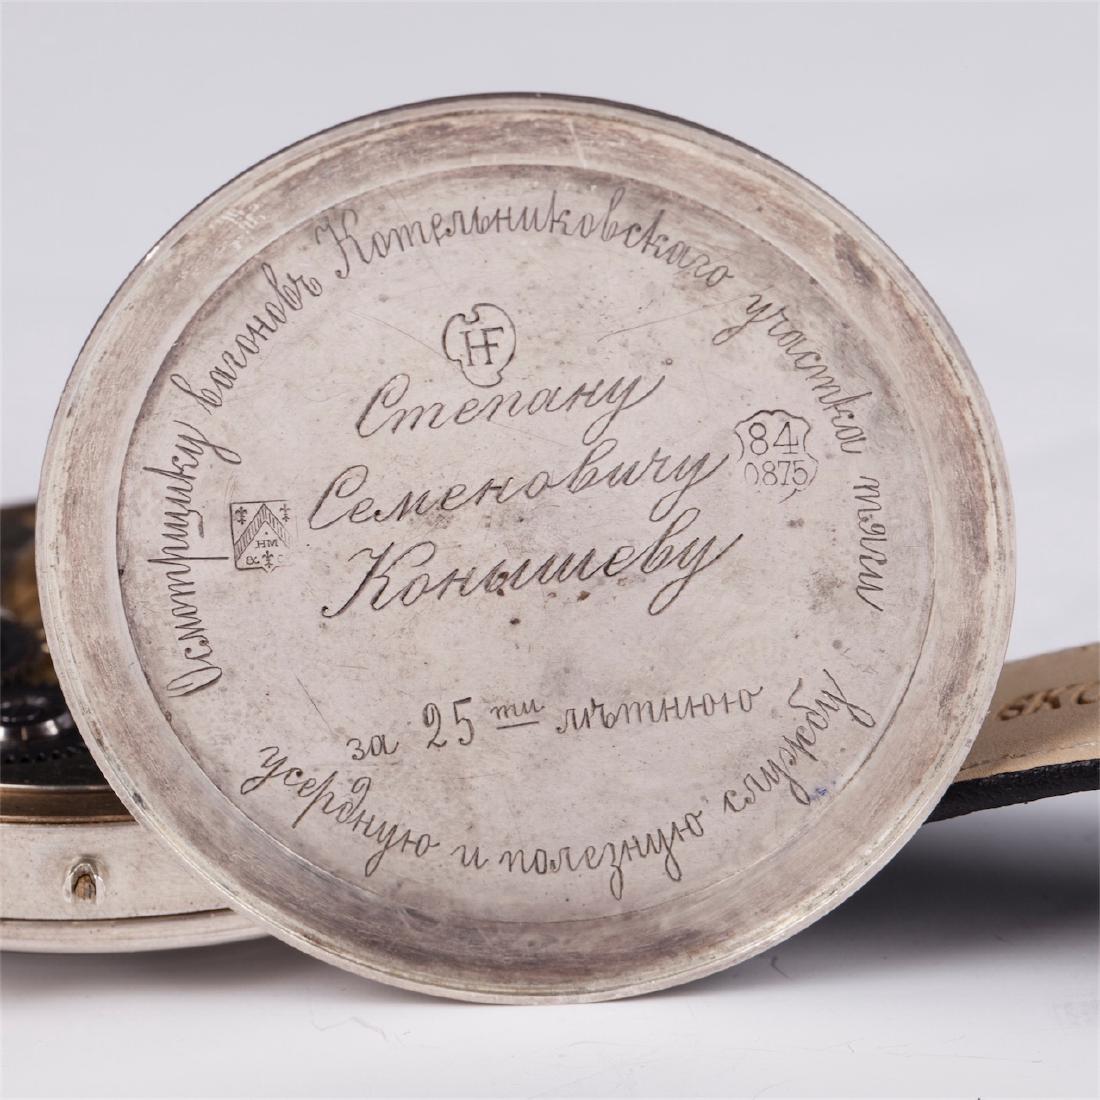 Осмотрщику вагоновъ Котельниковскаго участка тяги
HF
Степану
Семеновичу
Конышеву
84
0875
HM
за 25 ти лѣтнюю
усердную и полезную службу